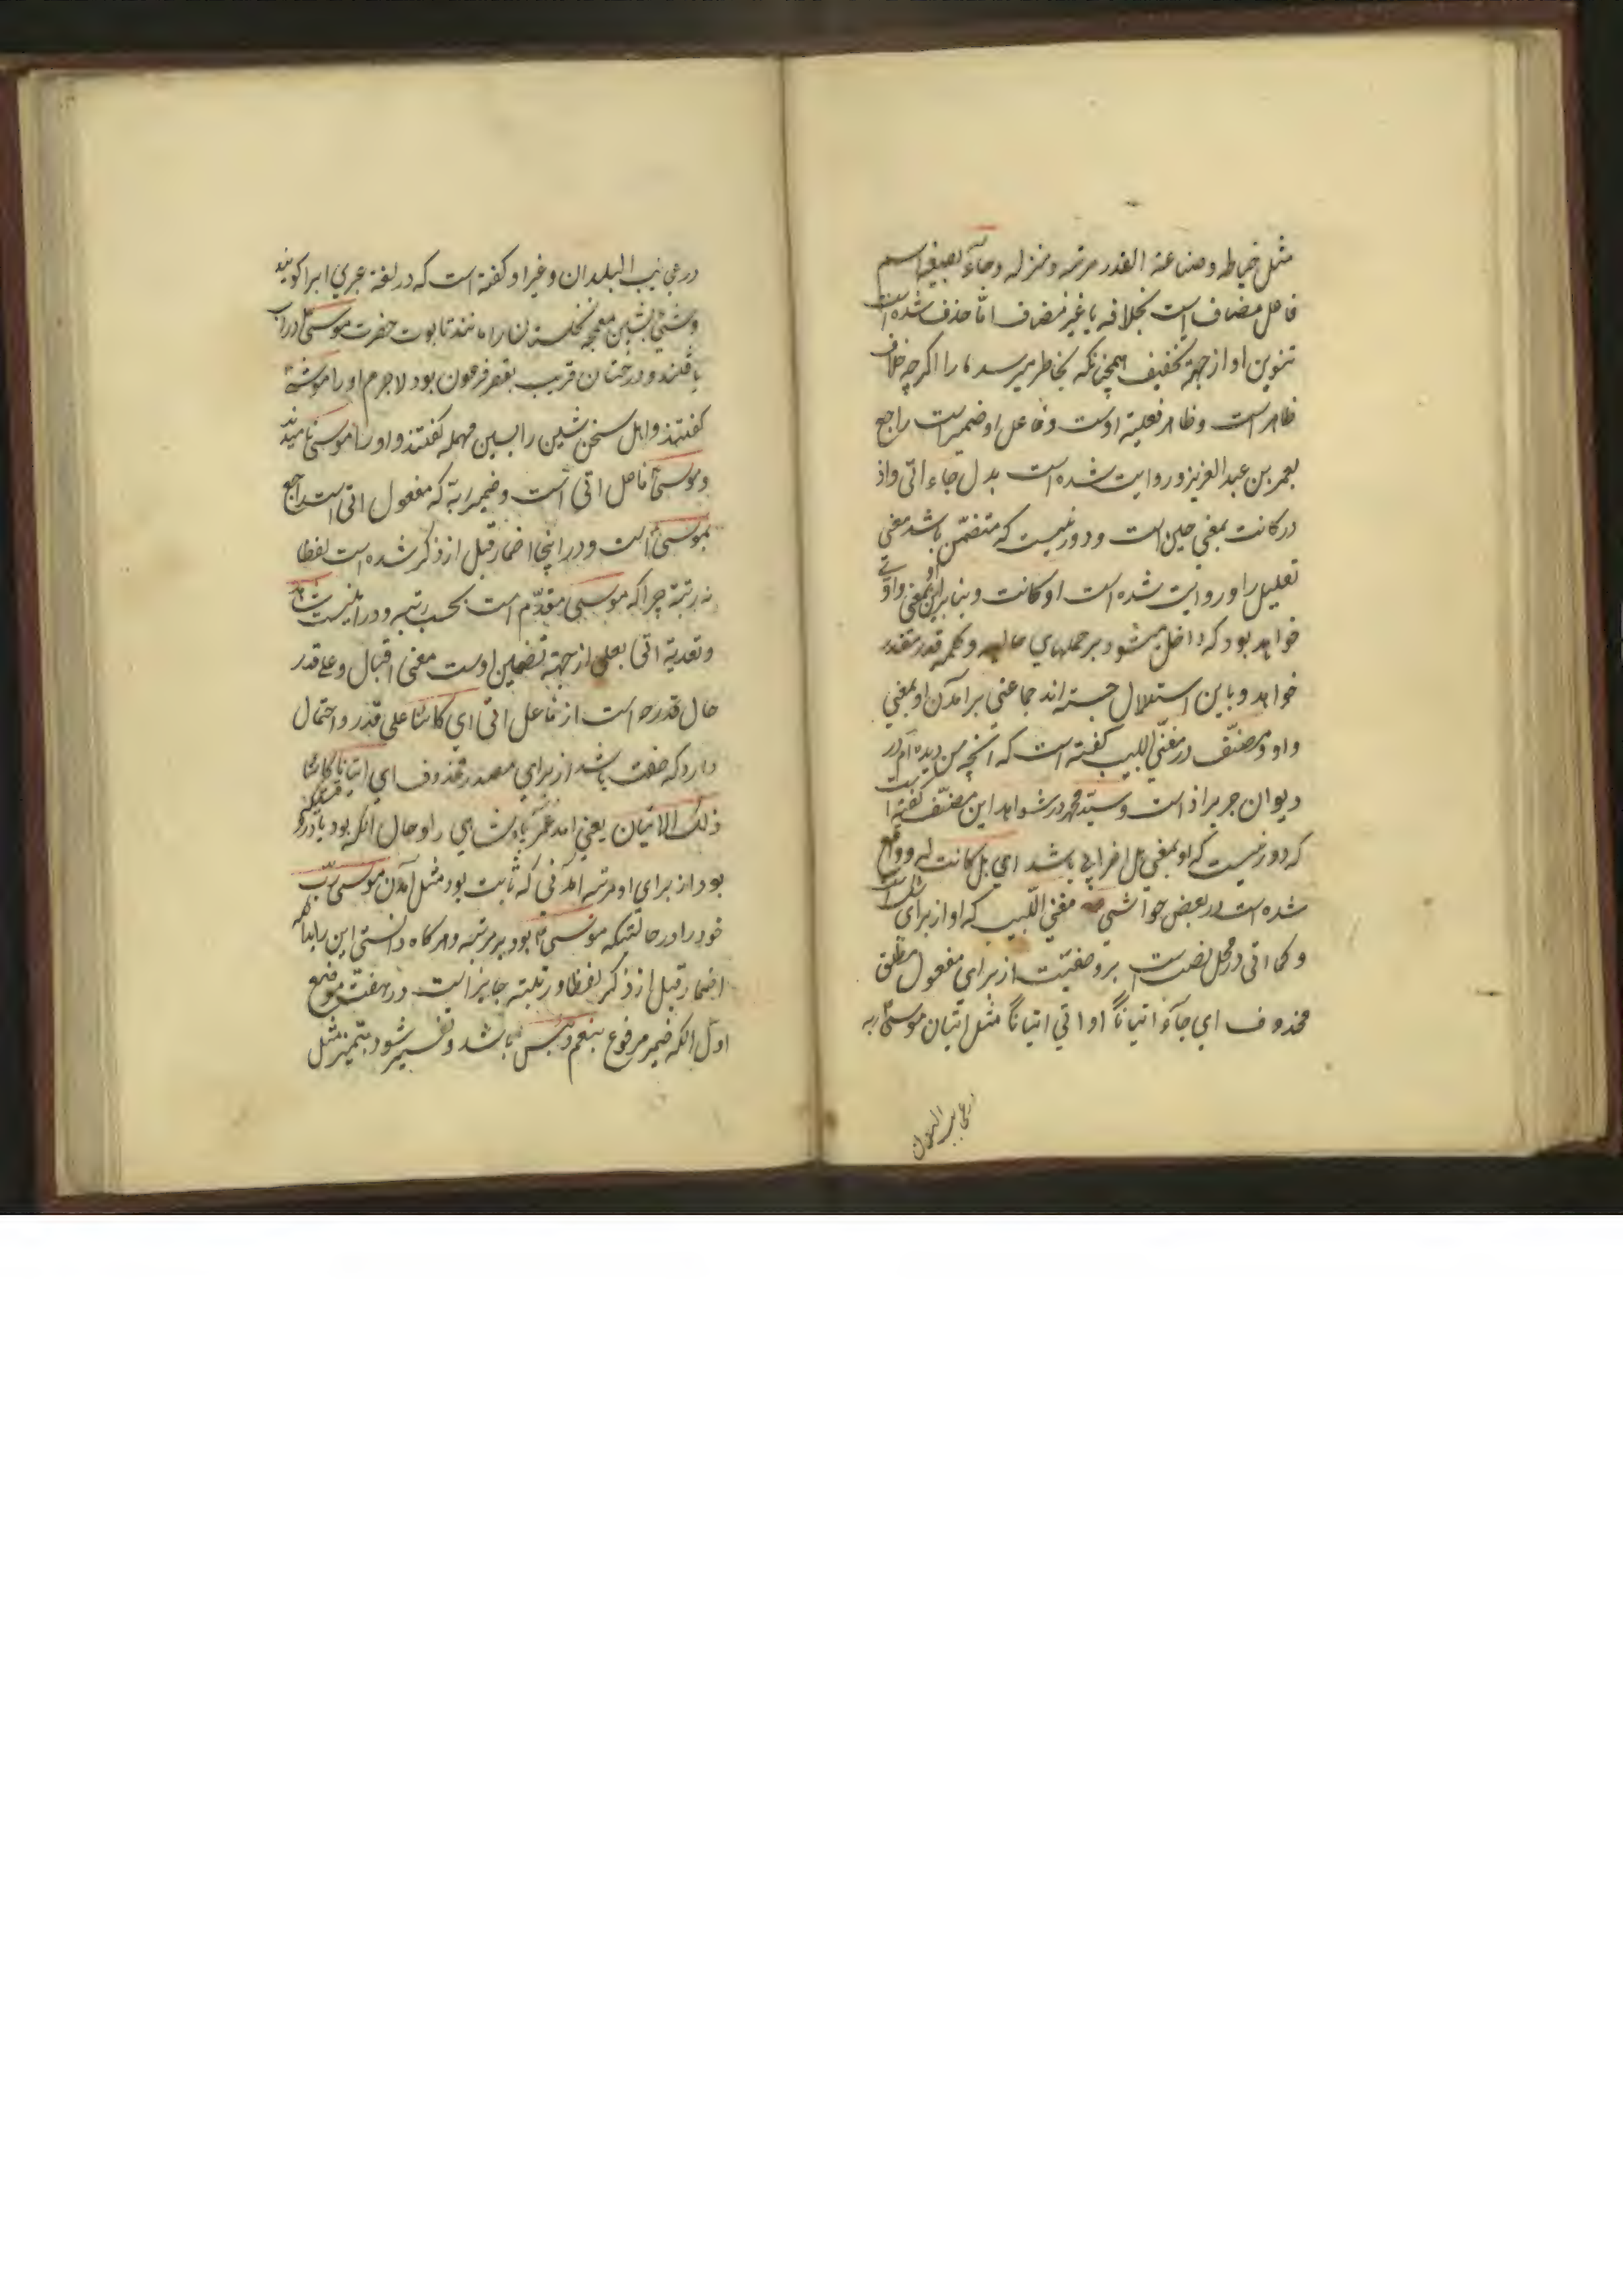 مثل خیاطه وصناعة القدر مرتبه ومنزله وجاء بصیغه اسم
فاعل مضاف است بخلافه یا غیر مضاف امّا حذف شده است
تنوین او از جهة تخفیف همچنانکه بخاطر میرسد ما را اکرچه خلاف
ظاهر است وظاهر فعلیة اوست وفاعل او ضمیر است راجع
بعمر بن عبد العزیز وروایت شده است بدل جاء اتی واذ
در کانت بمعنی حین است ودور نیست که متضمّن باشد معنی
تعلیل را وروایت شده است او کانت وبنابراین او بمعنی واو
خواهد بود که داخل میشود بر جملهای حالیه وکلمه قدر مقدر
خواهد وباین استدلال جسته اند جماعتی بر آمدن او بمعنی
واو ومصنّف در مغنی اللبیب کفته است که آنچه من دیده ام در
دیوان جریر اذ است وسیّد محمد در شواهد این مصنّف کفته است
که دور نیست که او بمعنی بل اضرابی باشد ای بل کانت له وواقع
شده است در بعض حواشی مغنی اللّبیب که او از برای شک است
وکما اتی در محل نصب است بر وصفیّت از برای مفعول مطلق
محذوف ای جاء اتیاناً او اتی اتیاناً مثل اتیان موسی ربه
در عجایب البلدان
در عجایب البلدان وغیر او کفته است که در لغة عبری اب را مو کویند
وشی بشین معجمه نخلستان را مانند تابوت حضرت موسی در اب
یافتند ودرختان قریب بقصر فرعون بود لاجرم او را موشی
کفتند واهل سخن شین را بسین مهمله کفتند واو را موسی نامیدند
وموسی فاعل اتی است وضمیر ربه که مفعول اتی است راجع
بموسی است ودر اینجا اضمار قبل از ذکر شده است لفظا
نه رتبة چراکه موسی مقدّم است بحسب رتبه ودر اینست شاهد
وتعدیة اتی بعلی از جهة تضمین اوست معنی اقبال وعلی قدر
حال قدره است از فاعل اتی ای کائنا علی قدر واحتمال
دارد که صفت باشد از برای مصدر محذوف ای اتیانا کائنا
ذلک الاتیان یعنی امد عمر پادشاهی را وحال آنکه بود پادشاهی
بود از برای او مرتبه آمدنی که ثابت بود مثل آمدن موسی ربّ
خود را در حالتیکه موسی بود بر مرتبه وهر کاه دانستی این را بدانکه
اضمار قبل از ذکر لفظا ورتبته جایز است در هفت موضع
اوّل آنکه ضمیر مرفوع بنعم وبئس باشد وتفسیر شود بتمیز مثل